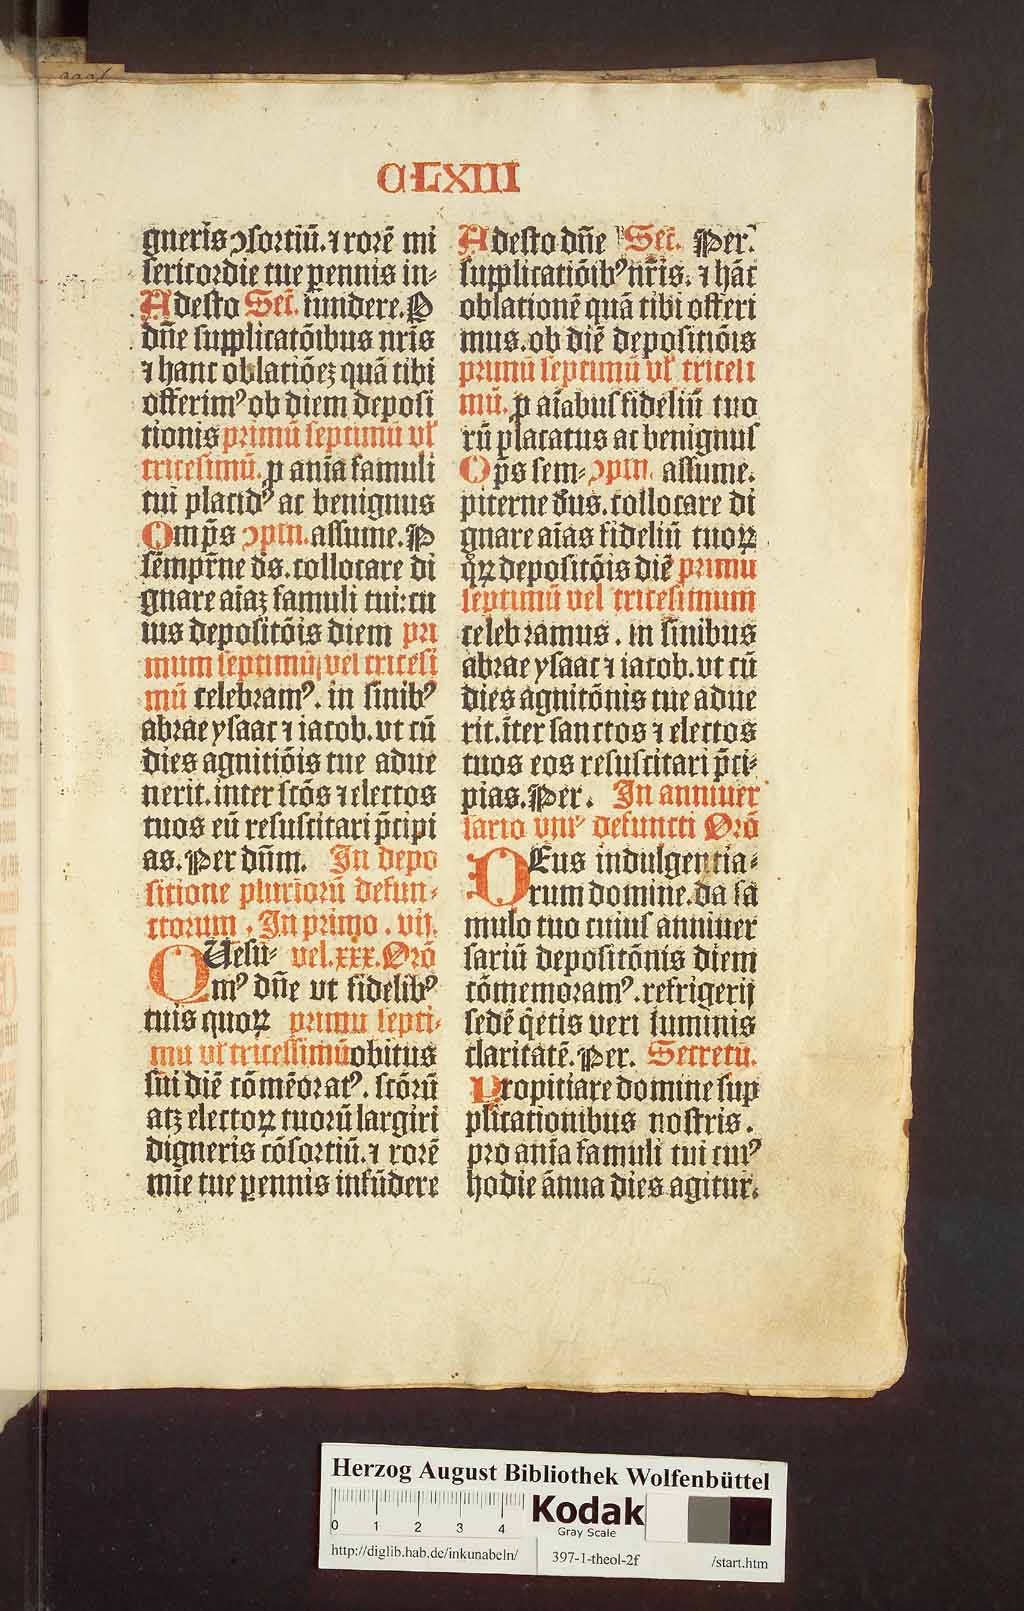 CLXIII
gneris ꝯsortiū. ⁊ rorē mi
sericordie tue ꝑennis in⸗
Adesto Secͬ. fundere. P
dn̄e supplicatōibus nr̄is
⁊ hanc oblatiōeꝫ quā tibi
offerimꝰ ob diem deposi
tionis primū septimū vl̓
tricesimū. ꝓ anīa famuli
tui placidꝰ ac benignus
Omp̄s ꝯpln. assume. P
semp̄rne ds̄. collocare di
gnare aīaꝫ famuli tui: cu
ius depositōis diem pri
mum septimū vel tricesi
mū celebramꝰ. in sinibꝰ
abrae ysaac ⁊ iacob. vt cū
dies agnitiōis tue adue
nerit. inter scōs ⁊ electos
tuos eū resuscitari p̄cipi
as. Per dn̄m. In depo
sitione pluriorū defun⸗
ctorum. In primo. vij.
QUesu⸗ vel. xxx. Orō
mꝰ dn̄e vt fidelibꝰ
tuis quoꝝ primū septi⸗
mū vl̓ tricessimū obitus
sui diē cōmēoratꝰ. scōrū
atꝫ electoꝝ tuorū largiri
digneris cōsortiū. ⁊ rorē
mīe tue ꝑennis infūdere
Adesto dn̄e Secͬ. Per.
supplicatiōibꝰ nr̄is. ⁊ hāc
oblationē quā tibi offeri
mus. ob diē depositiōis
primū septimū vl̓ tricesi
mū. ꝓ aīabus fideliū tuo
rū placatus ac benignus
Op̄s sem⸗ ꝯpln. assume.
piterne deus. collocare di
gnare aīas fideliū tuoꝝ
qͦꝝ depositōis diē primū
septimū vel tricesimum
celebramus. in sinibus
abrae ysaac ⁊ iacob. vt cū
dies agnitōnis tue adue
rit. īter sanctos ⁊ electos
tuos eos resuscitari p̄ci⸗
pias. Per. In anniuer
sario vniꝰ defuncti Orō
DEus indulgentia⸗
rum domine. da fa
mulo tuo cuius anniuer
sariū depositōnis diem
cōmemoramꝰ. refrigerij
sedē q̄etis veri luminis
claritatē. Per. Secretū.
Propitiare domine sup
plicationibus nostris.
pro anīa famuli tui cuiꝰ
hodie ānua dies agitur.
Herzog August Bibliothek Wolfenbüttel
0 1 2 3 4
Kodak
Gray Scale
http://diglib.hab.de/inkunabeln/ 397-1-theol-2f /start.htm